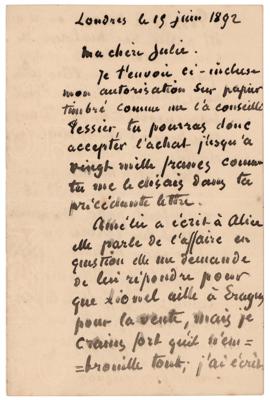 Londres le 15 juin 1892
Ma chère Julie.
Je t'envoie ci-incluse
mon autorisation sur papier
timbré comme me l'a conseillé
Tessier, tu pourras donc
accepter l'achat jusqu'à
vingt mille francs comme
tu me le disais dans ta
précédente lettre.
Amélie a écrit à Alice
elle parle de l'affaire en
question elle me demande
de lui répondre pour
que Lionel aille à Eragny
pour la vente, mais je
crains fort qu'il n'em=
=brouille tout; j'ai écrit